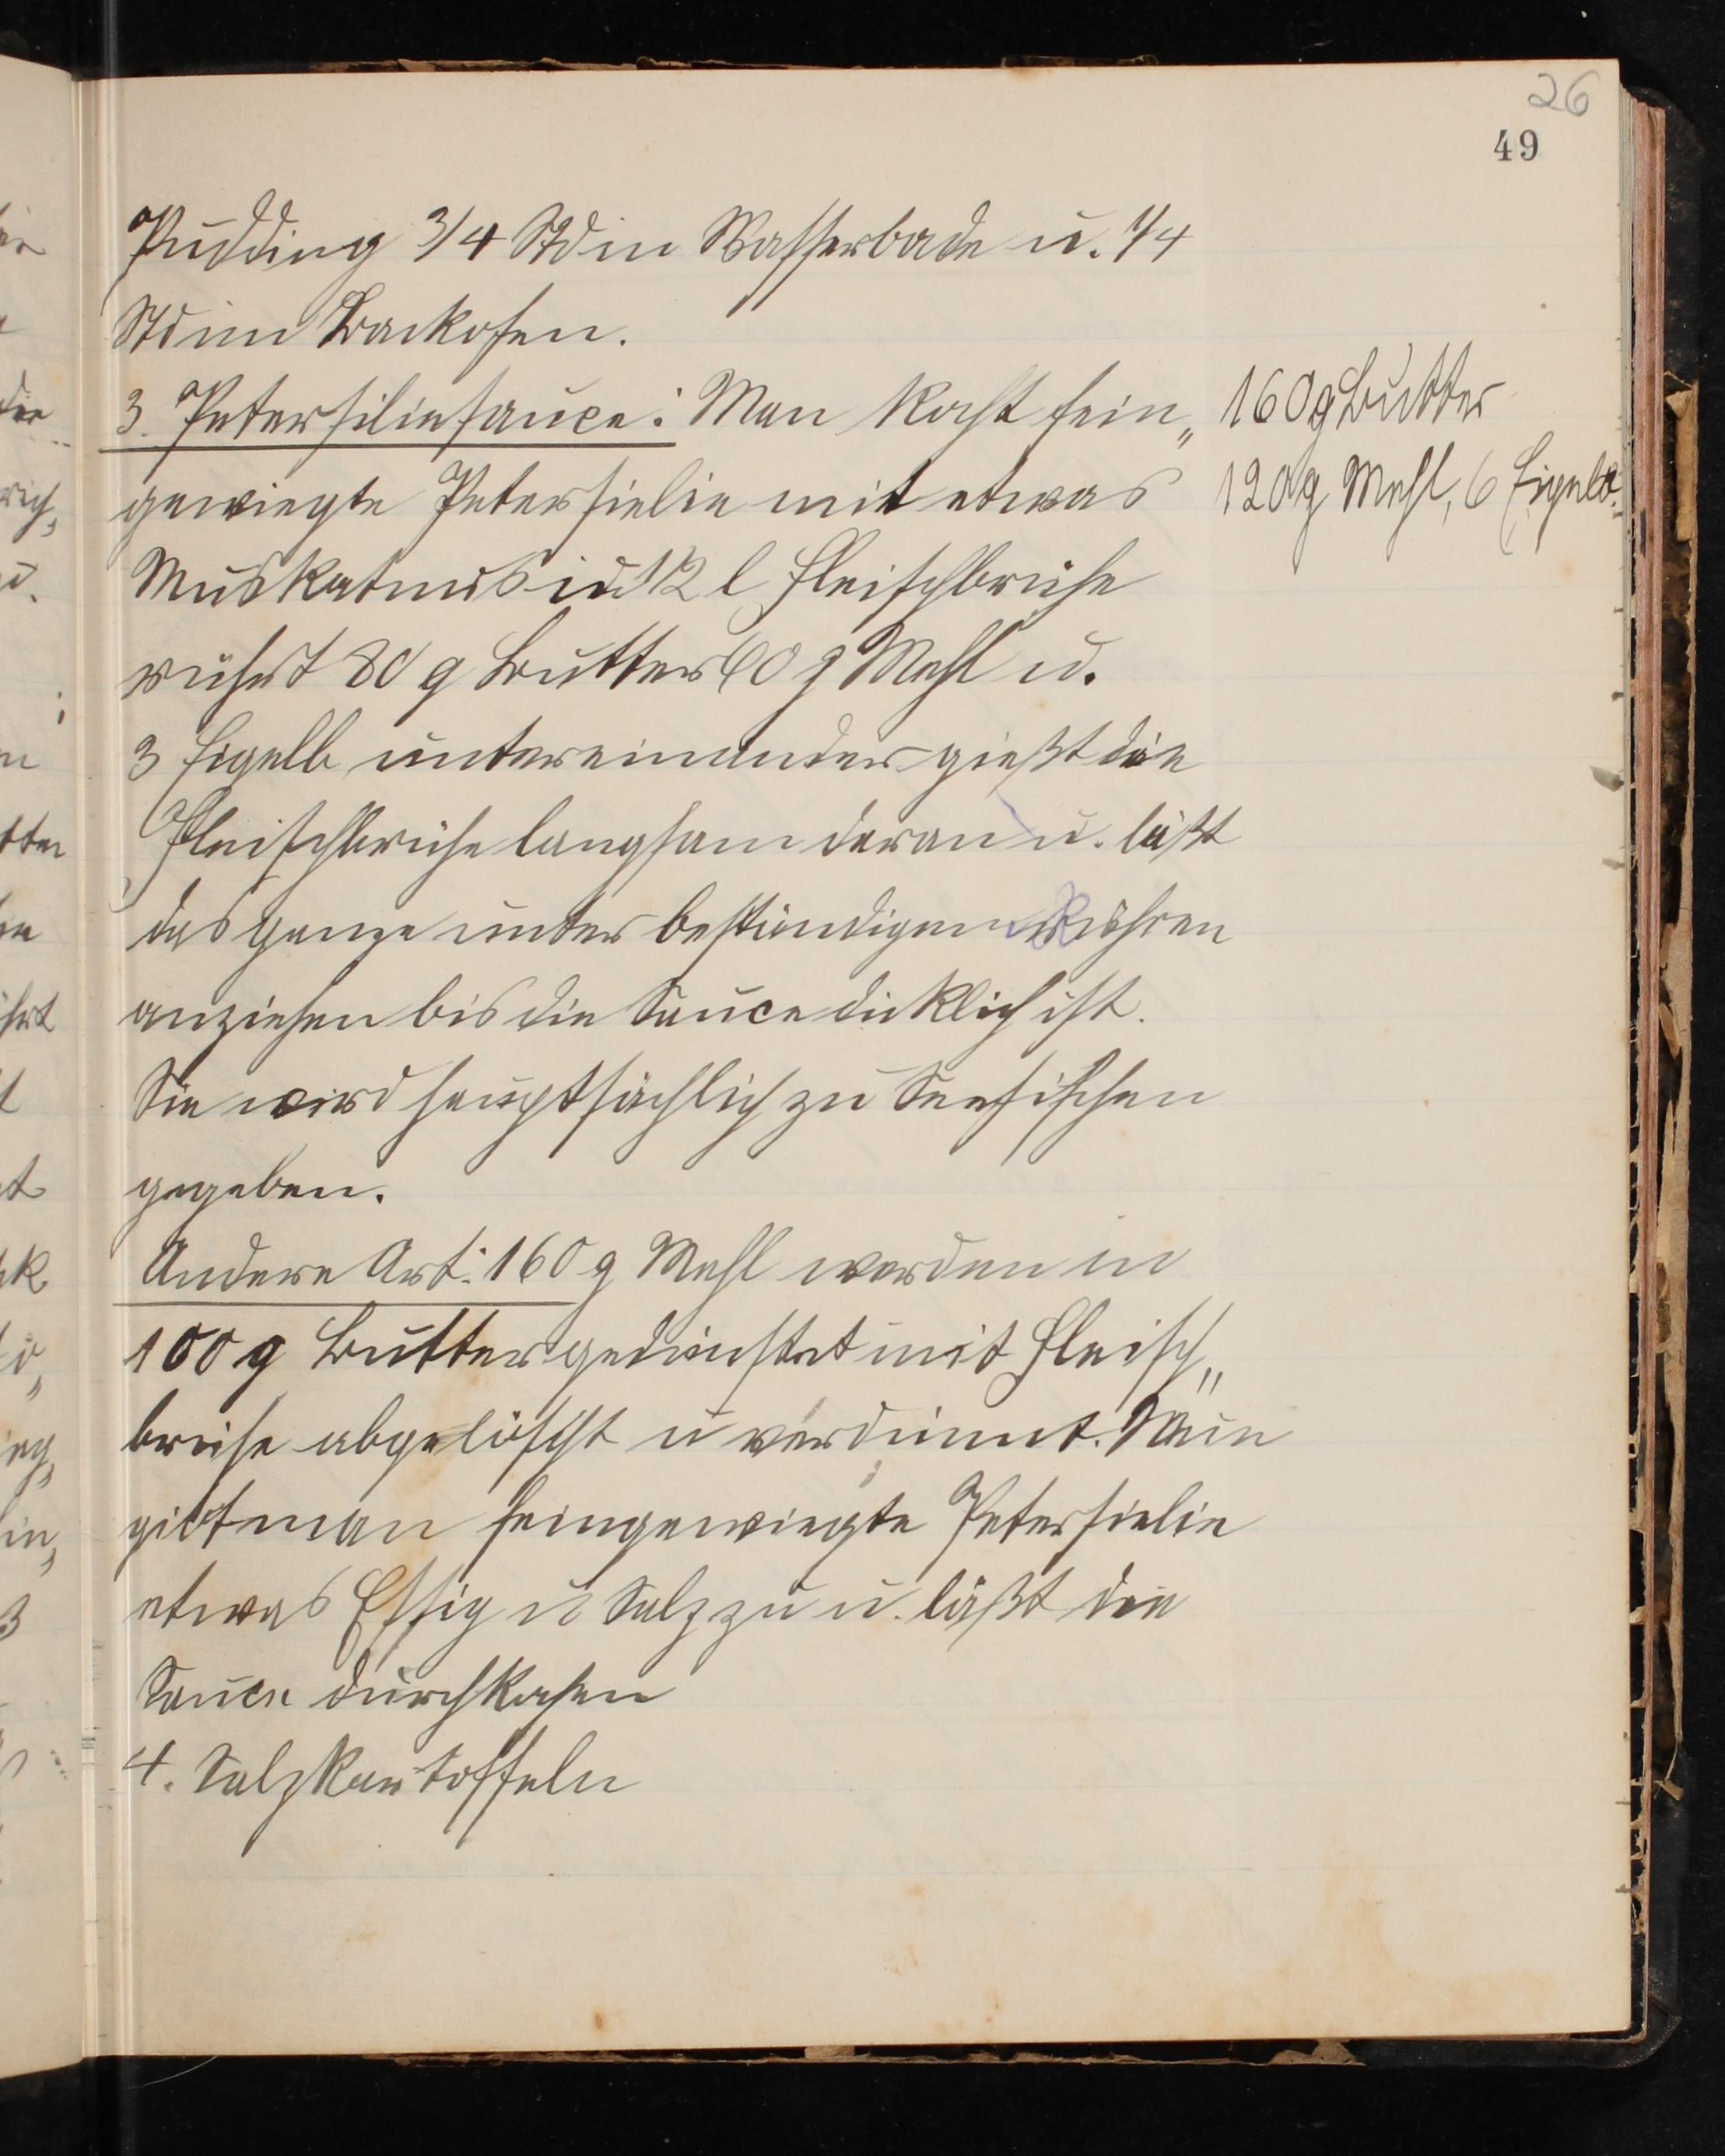 26
49
Pudding 3/4 Std in Wasserbade u. 1/4
Std im Backofen.
3. Petersiliesauce: Man kocht fein„
gewiegte Petersielie mit etwas
Muskatnus in 1/2 l Fleischbrühe
rührt 80 g Butter 60 g Mehl u.
3 Eigelb untereinander gießt die
Fleischbrühe langsam daran u. läßt
das ganze unter beständigem Rühren
anziehen bis die Sauce dicklich ist.
Sie wird hauptsächlich zu Seefischen
gegeben.
Andere Art: 160 g Mehl werden in
100 g Butter gedünstet mit Fleisch„
brühe abgelöscht u verdünnt. Nun
gibt man feingewiegte Petersielie
etwas Essig u Salz zu u. läßt die
Sauce durchkochen
4. Salzkartoffeln
160 g Butter
120 g Mehl, 6 Eigelb.